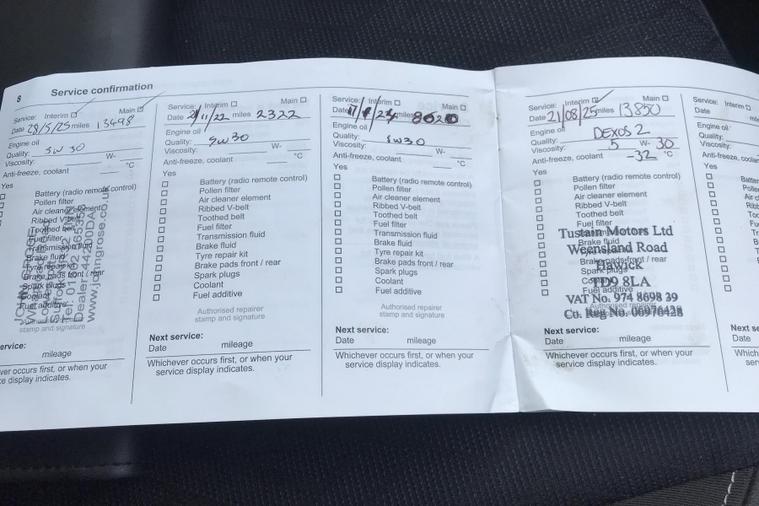 8 Service confirmation
Service: Interim Main
Date 28/5/25 miles 13498
Engine oil
Quality: 5W 30
Viscosity: W-
Anti-freeze, coolant °C
Yes
Battery (radio remote control)
Pollen filter
Air cleaner element
Ribbed V-belt
Toothed belt
Fuel filter
Transmission fluid
Brake fluid
Tyre repair kit
Brake pads front / rear
Spark plugs
Coolant
Fuel additive
www.johngrose.co.uk
stamp and signature
ervice:
mileage
ver occurs first, or when your
ce display indicates.
Service: Interim Main
Date /11/22 miles 2322
Engine oil
Quality: 5W30
Viscosity: W-
Anti-freeze, coolant °C
Yes
Battery (radio remote control)
Pollen filter
Air cleaner element
Ribbed V-belt
Toothed belt
Fuel filter
Transmission fluid
Brake fluid
Tyre repair kit
Brake pads front / rear
Spark plugs
Coolant
Fuel additive
Authorised repairer
stamp and signature
Next service:
Date mileage
Whichever occurs first, or when your
service display indicates.
Service: Interim Main
Date miles
Engine oil
Quality: 5W30
Viscosity: W-
Anti-freeze, coolant °C
Yes
Battery (radio remote control)
Pollen filter
Air cleaner element
Ribbed V-belt
Toothed belt
Fuel filter
Transmission fluid
Brake fluid
Tyre repair kit
Brake pads front / rear
Spark plugs
Coolant
Fuel additive
Authorised repairer
stamp and signature
Next service:
Date mileage
Whichever occurs first, or when your
service display indicates.
Service: Interim Main
Date 21/08/25 miles 13850
Engine oil
Quality: DEXOS 2
Viscosity: 5 W- 30
Anti-freeze, coolant -32 °C
Yes
Battery (radio remote control)
Pollen filter
Air cleaner element
Ribbed V-belt
Toothed belt
Fuel filter
Tustain Motors Ltd
Brake fluid
Weensland Road
Brake pads front / rear
Hawick
Spark plugs
TD9 8LA
Fuel additive
VAT No. 974 8698 39
Co. Reg No. 00976428
stamp and signature
Next service:
Date mileage
Whichever occurs first, or when your
service display indicates.
Service: Interim
Date
Engine oil
Quality:
Viscosity:
Anti-freeze, coolan
Yes
Next se
Date